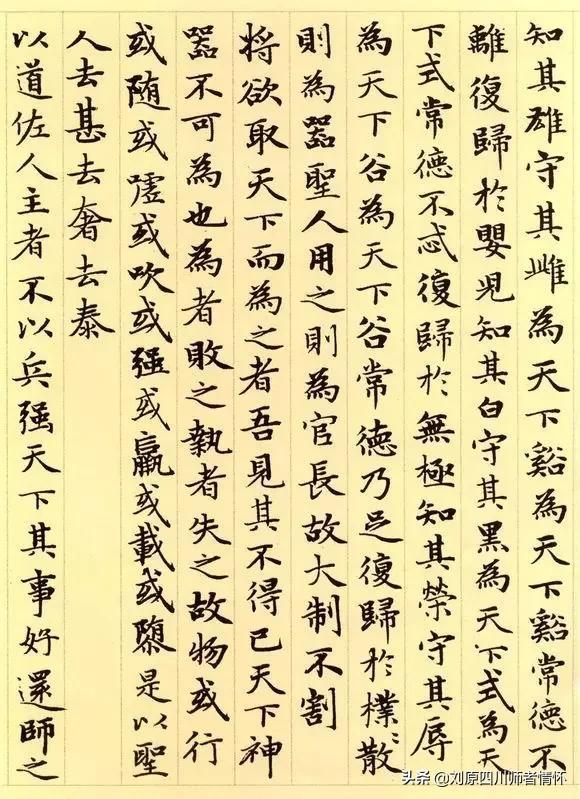 知其雄守其雌為天下谿為天下谿常德不
離復歸於嬰児知其白守其黑為天下式為天
下式常德不忒復歸於無極知其榮守其辱
為天下谷為天下谷常德乃足復歸於樸〻散
則為器聖人用之則為官長故大制不割
将欲取天下而為之者吾見其不得已天下神
器不可為也為者敗之執者失之故物或行
或随或嘘或吹或强或羸或載或隳是以聖
人去甚去奢去泰
以道佐人主者不以兵强天下其事好還師之
头条 @刘原四川师者情怀